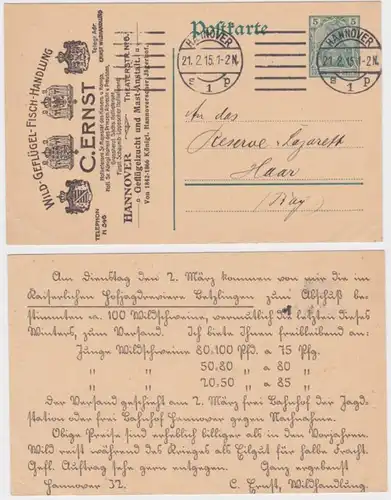 WILD-GEFLÜGEL-FISCH-HANDLUNG
C. ERNST
Telegr. Adr.
TELEPHON
N 846
HANNOVER
THEATERSTR. No 6.
Geflügelzucht und Mast-Anstalt.
Von 1842-1866 Königl. Hannoverscher Jägerhof.
Postkarte
HANNOVER
21. 2. 15. 1-2 N.
s 1 p
HANNOVER
21. 2. 15. 1-2 N.
s 1 p
5 5
An das
Reserve-Lazarett
Haar
(Bay.)
Am Dienstag den 2. März kommen von mir die im
Kaiserlichen Hofjagdrevier Letzlingen zum Abschuß be-
stimmten ca. 100 Wildschweine, vermutlich die letzten dieses
Winters, zum Versand. Ich biete Ihnen freibleibend an:
Junge Wildschweine 80.100 Pfd. a 75 Pfg.
" " 50.80 " a 80 "
" " 20.50 " a 85 "
Der Versand geschieht am 2. März frei Bahnhof der Jagd-
station oder frei Bahnhof Hannover gegen Nachnahme.
Obige Preise sind erheblich billiger als in den Vorjahren.
Wild reist während des Krieges als Eilgut für halbe Fracht.
Gefl. Auftrag sehe gern entgegen. Ganz ergebenst
Hannover 32. C. Ernst, Wildhandlung.